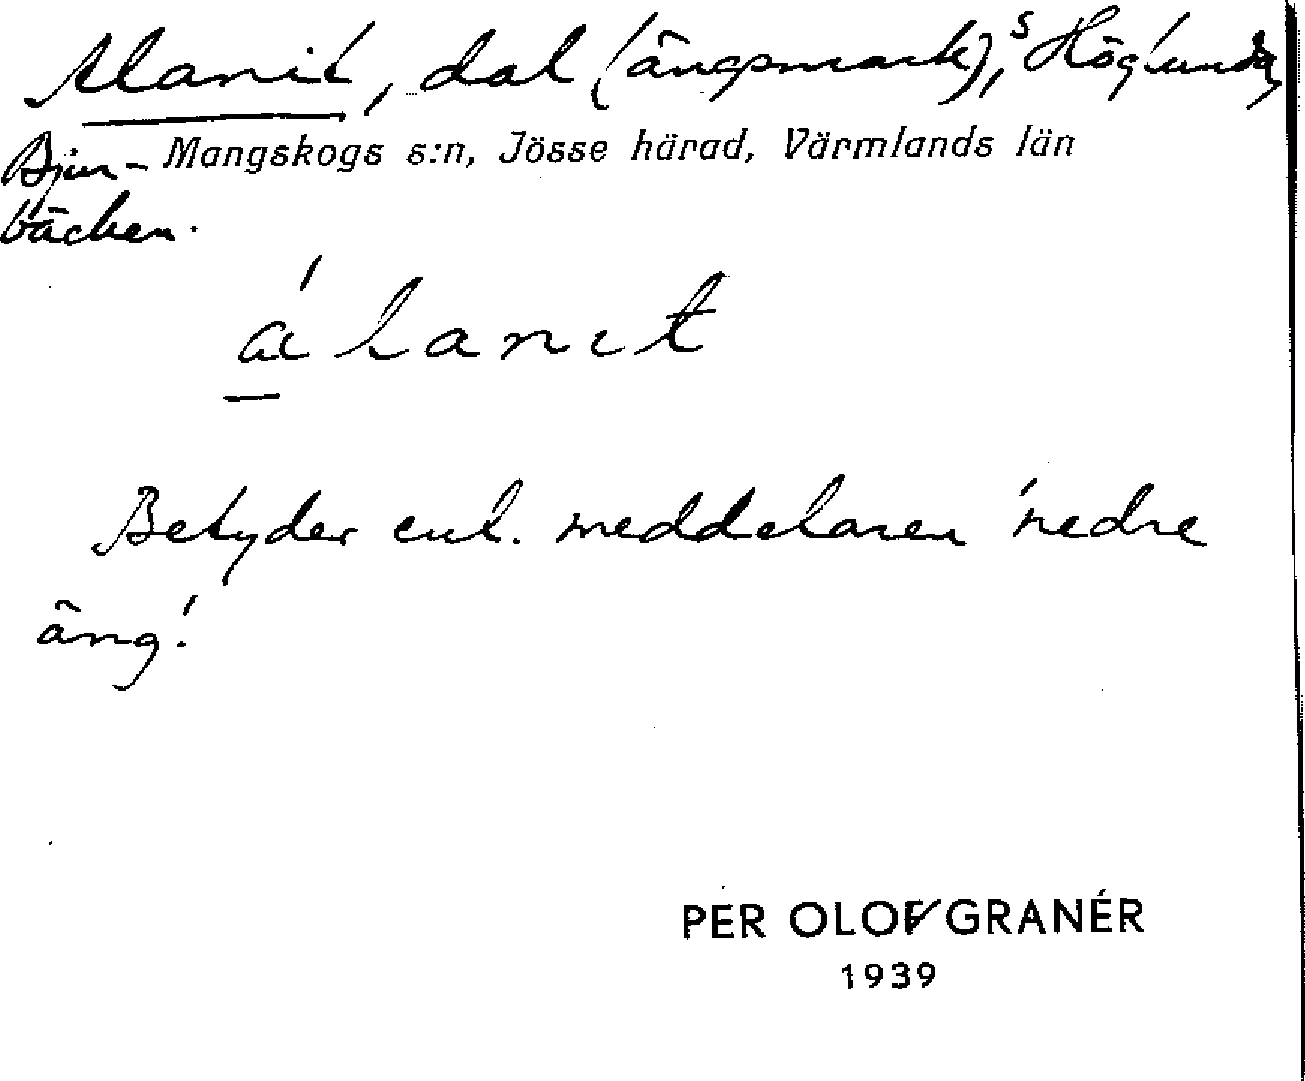 Alanit, dal (ängsmark), s Höglunda,
Bjur- Mangskogs s:n, Jösse härad, Värmlands län
bäcken.
álanıt
Betyder enl. meddelaren 'nedre
äng'.
PER OLOF GRANÉR
1939